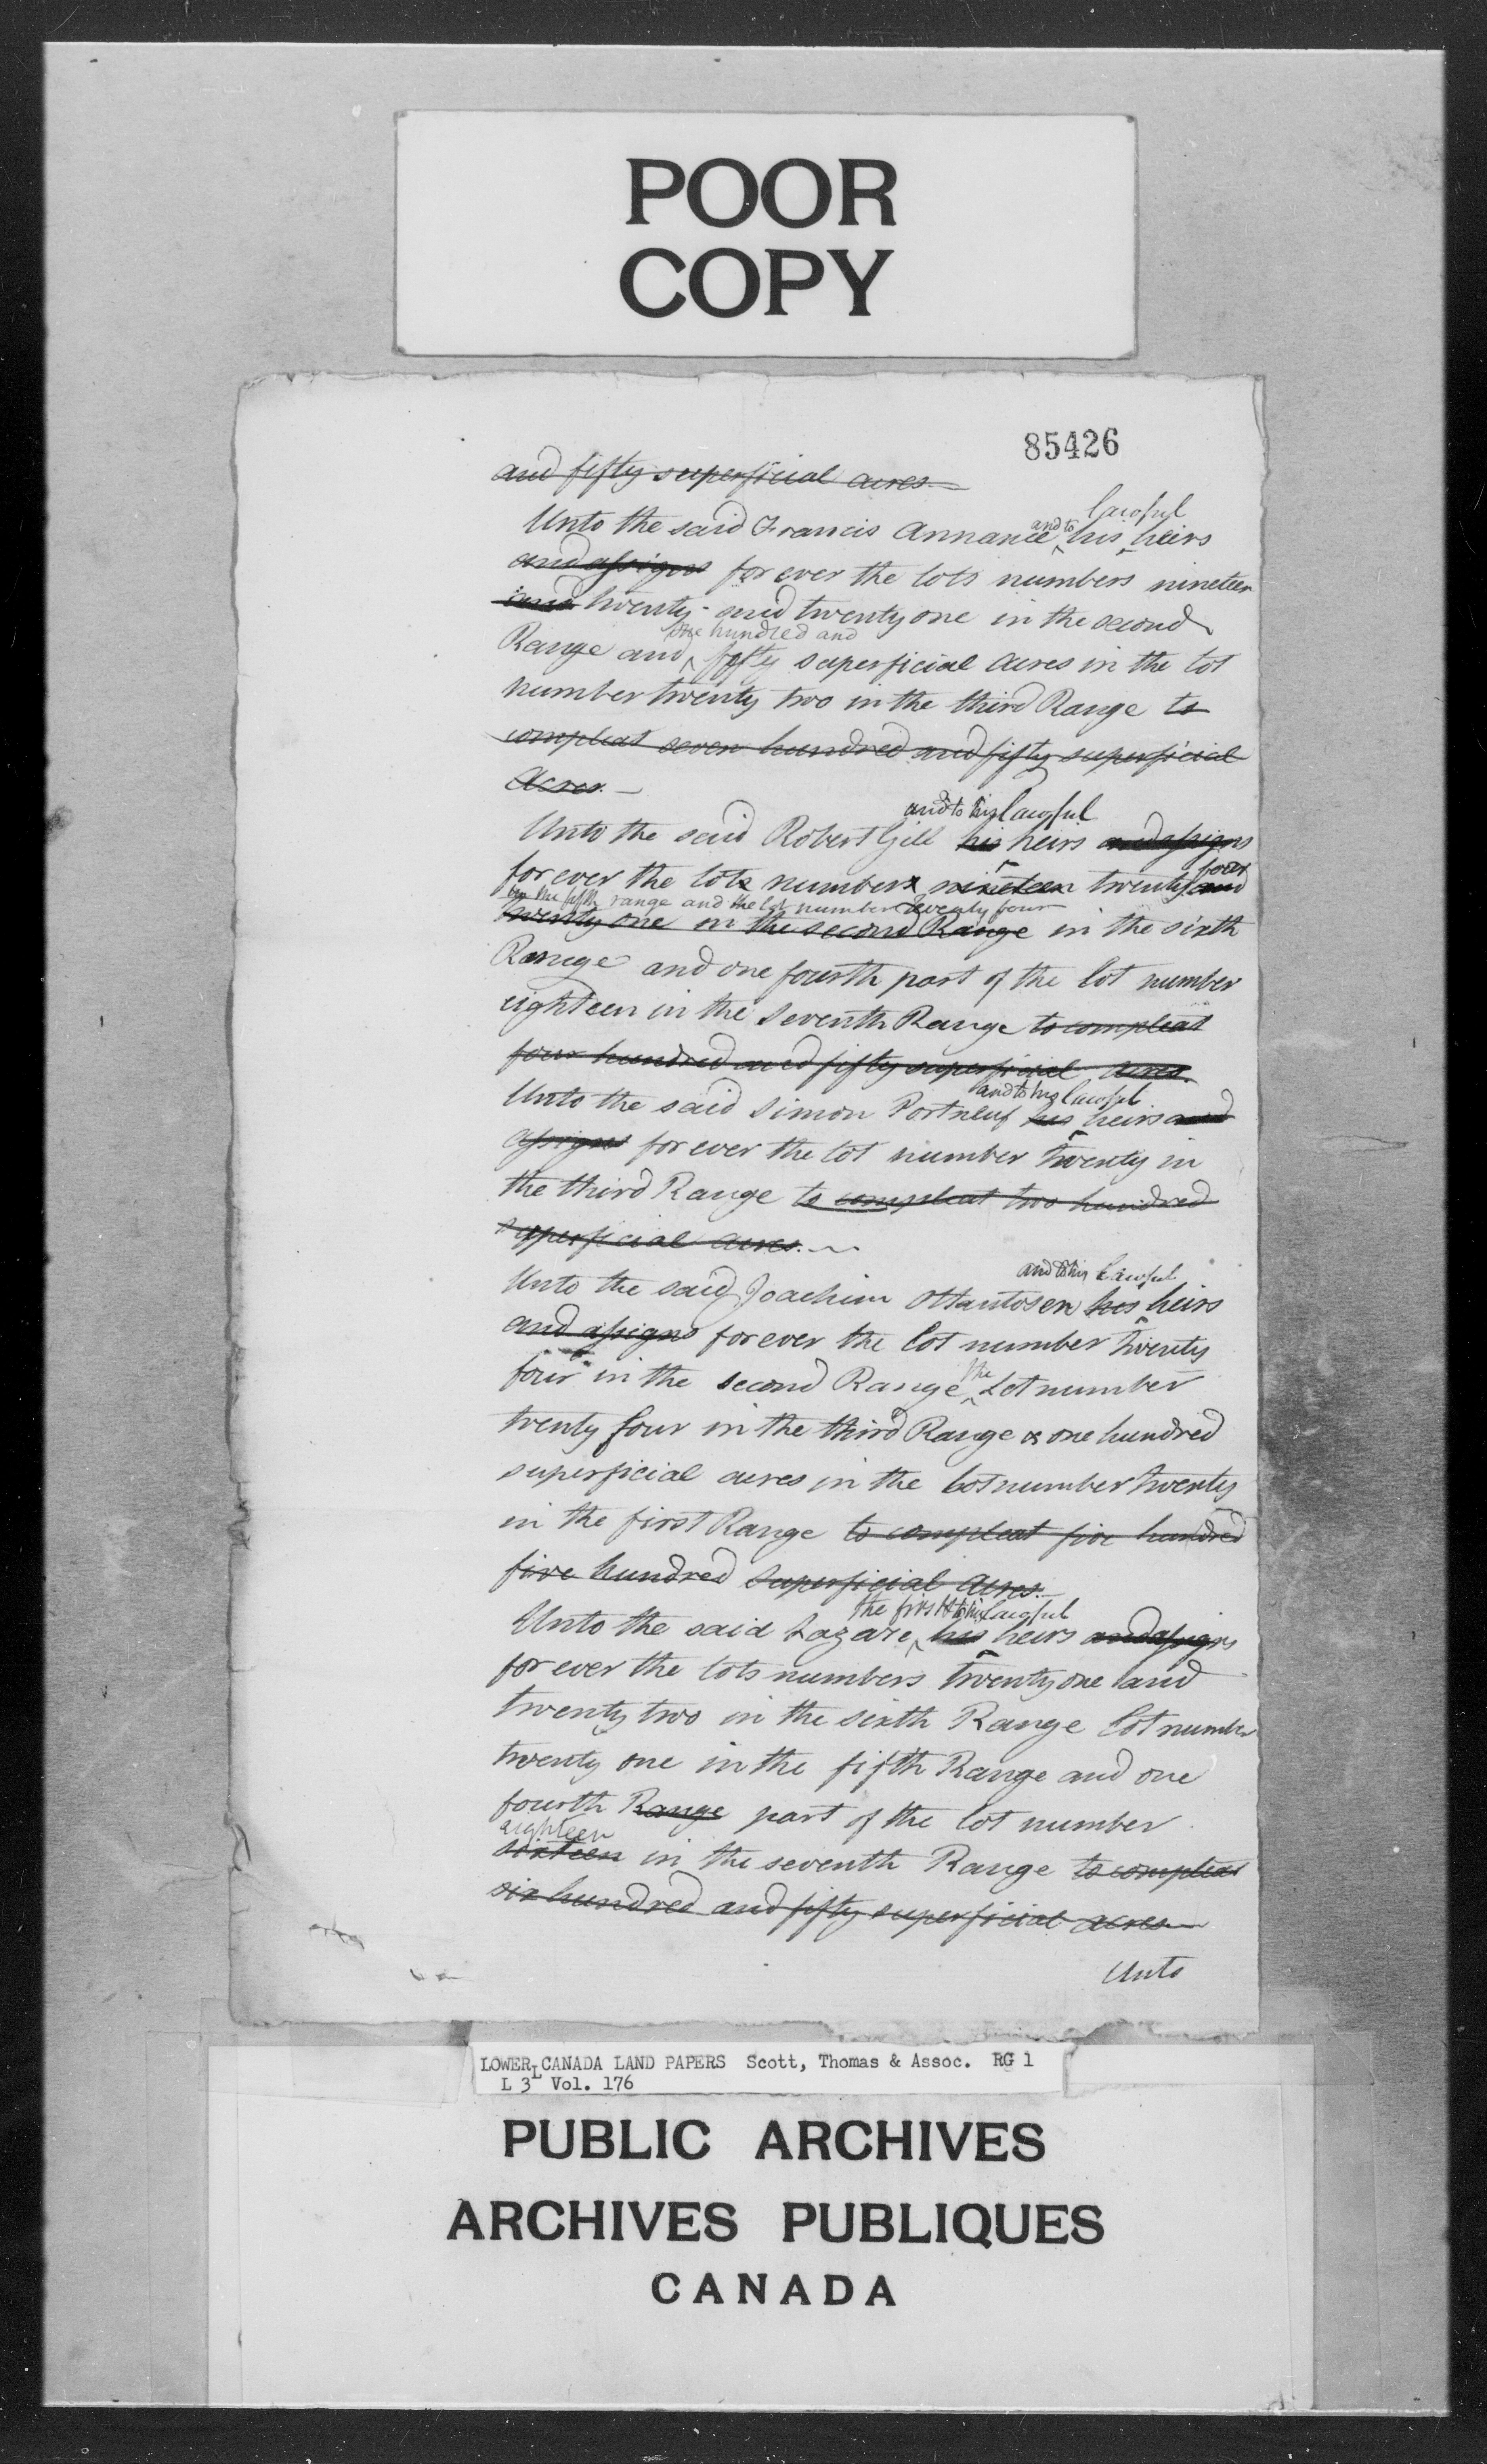 POOR
COPY
85426
and fifty superficial acres.
lawful
and to
Unto the said Francis Annance his heirs
and assigns for ever the lots numbers nineteen
and twenty and twenty one in the second
one hundred and
Range and fifty superficial acres in the lot
number twenty two in the third Range to
compleat seven hundred and fifty superficial
Acres.
and to his lawful
Unto the said Robert Gill his heirs and assigns
four
for ever the lots numbers nineteen twenty and
in the fifth range and the lot number twenty four
twenty one in the second Range in the sixth
Range and one fourth part of the lot number
eighteen in the Seventh Range to compleat
four hundred and fifty superficial acres.
and to his lawful
Unto the said Simon Portneuf his heirs and
assigns for ever the lot number twenty in
the third Range to compleat two hundred
superficial acres.
and to his lawful
Unto the said Joachim Ottantosen his heirs
and assigns for ever the lot number twenty
four in the second Range
the
Lot number
twenty four in the third Range & one hundred
superficial acres in the lot number twenty
in the first Range to compleat five hundred
five hundred superficial acres.
the first & to his lawful
Unto the said Lazare his heirs and assigns
for ever the lots numbers twenty one and
twenty two in the sixth Range lot number
twenty one in the fifth Range and one
fourth Range part of the lot number
eighteen
sixteen in the seventh Range to compleat
six hundred and fifty superficial acres
Unto
LOWER CANADA LAND PAPERS Scott, Thomas & Assoc. RG 1
L 3 L Vol. 176
PUBLIC ARCHIVES
ARCHIVES PUBLIQUES
CANADA